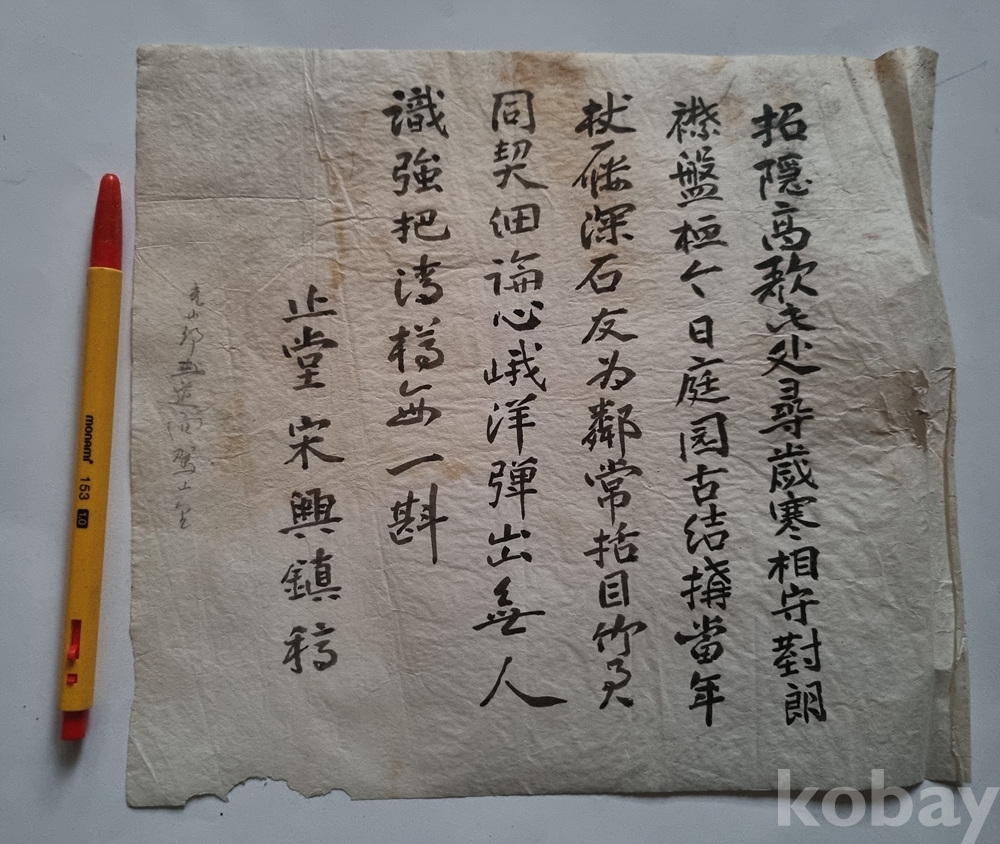 招隱高歌此处尋歲寒相守對朗
襟盤桓今日庭园古結搆當年
杖屨深石友为鄰常括目竹
同契細論心峨洋弹出無人
識強把清樽每一斟
止堂宋興鎮稿
monami 153 1.0
kobay